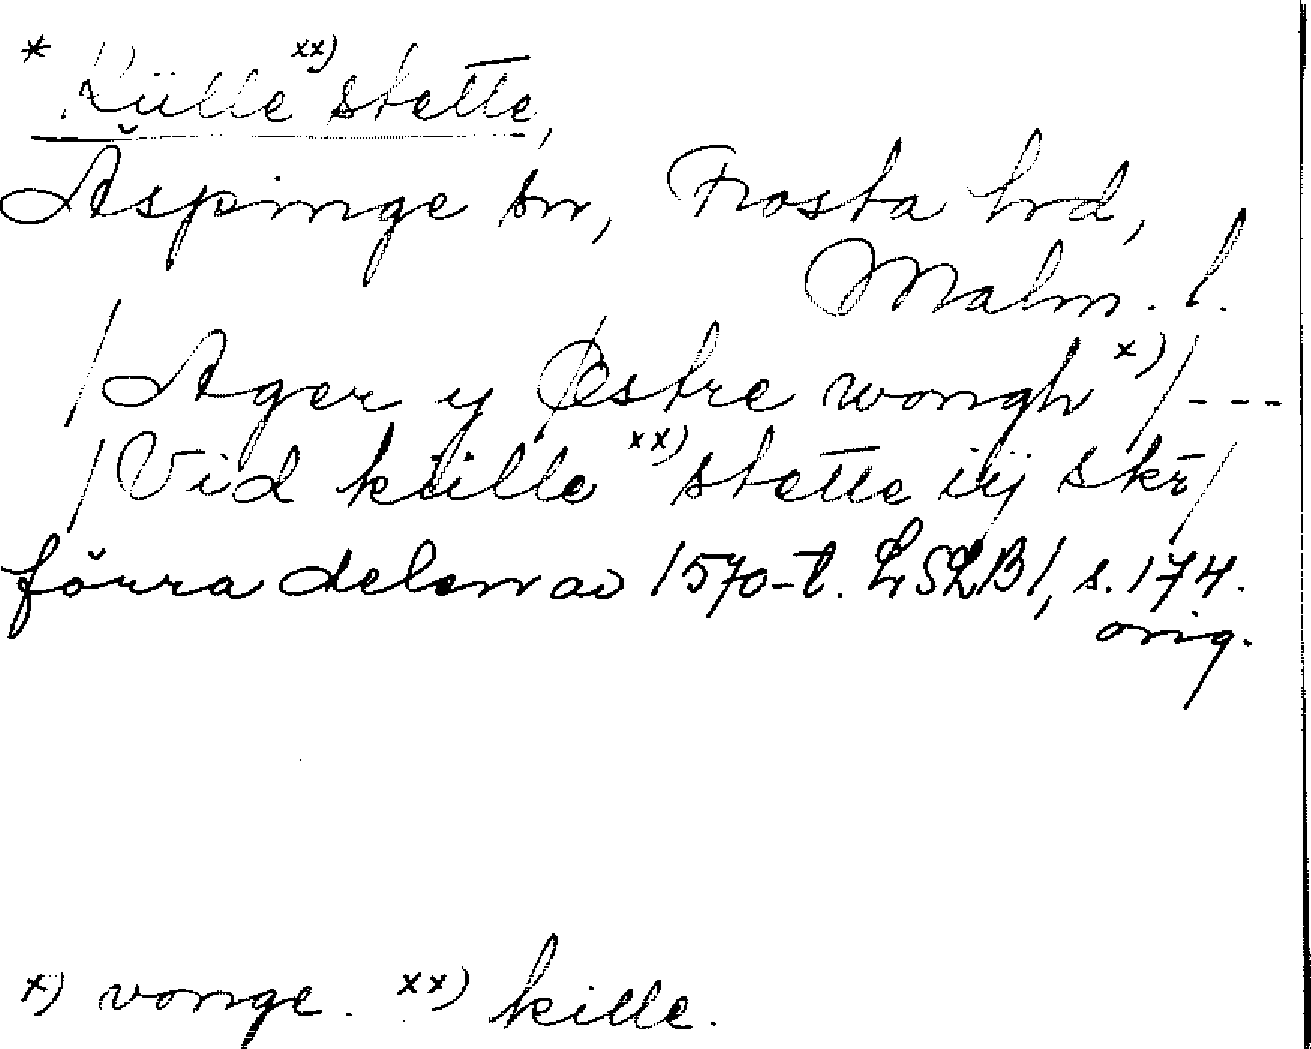 * Külle xx) stette,
Äspinge sn, Frosta hrd,
Malm. l.
/Ager y Østre wongh x)/---
/Vid külle xx) stette iij skr/
förra delen av 1570-t. LSLB1, s. 174.
orig.
x) vonge. xx) kille.